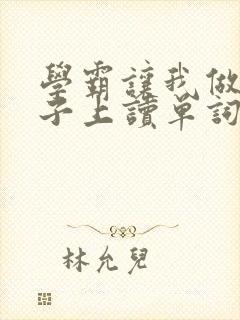 學霸讓我做
子上讀單詞
林允兒